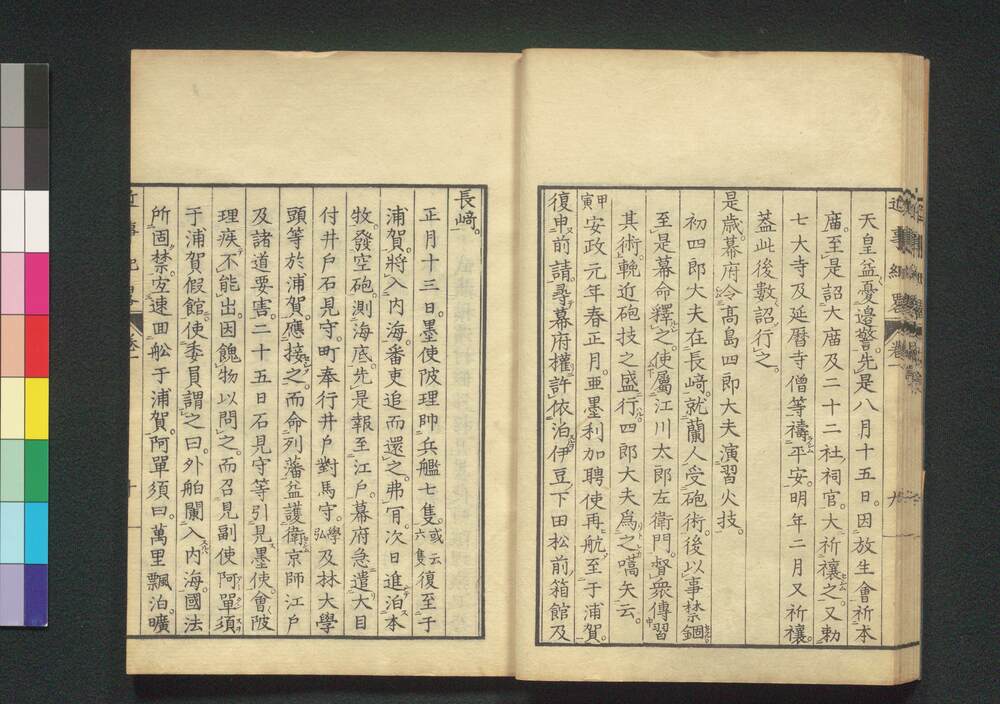 近事紀略 卷一 九
天皇益憂邊警。先是八月十五日。因放生會祈本
廟。至是詔大廟及二十二社祠官。大祈禳之。又勅
七大寺及延暦寺僧等禱平安。明年二月又祈禳。
葢此後數詔行之。
是歳。幕府令高島四郎大夫演習火技。
初四郎大夫在長﨑。就蘭人受砲術。後以事禁錮。
至是幕命釋之。使屬江川太郎左衛門。督衆傳習
其術。輓近砲技之盛行。四郎大夫爲之嚆矢云。
甲寅安政元年春正月。亜墨利加聘使再航至于浦賀。
復申前請。尋幕府權許依泊伊豆下田松前箱館及
長﨑。
正月十三日。墨使陂理帥兵艦七隻。或云六隻復至于
浦賀。將入内海。番吏追而還之。弗肎。次日進泊本
牧。發空砲。測海底。先是報至江戸。幕府急遣大目
付井戸石見守。町奉行井戸對馬守。學弘及林大學
頭等於浦賀。應接之。而命列藩益護衛京師江戸
及諸道要害。二十五日石見守等引見墨使。會陂
理疾。不能出。因餽物以問之。而召見副使阿單須
于浦賀假館。使委員謂之曰。外舶闌入内海。國法
所固禁。宜速回舩于浦賀。阿單須曰。萬里飄泊。曠
近事紀略 卷一 十